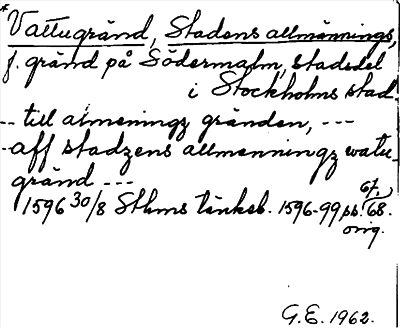 *Vattugränd, Stadens allmännings,
f. gränd på Södermalm, stadsdel
i Stockholms stad.
-- till almeningz gränden, ---
- aff stadzens allmenningz watu-
gränd ---
1596 30/8 Sthms tänkeb. 1596-99 sid. 67, 68.
orig.
G.E. 1962.